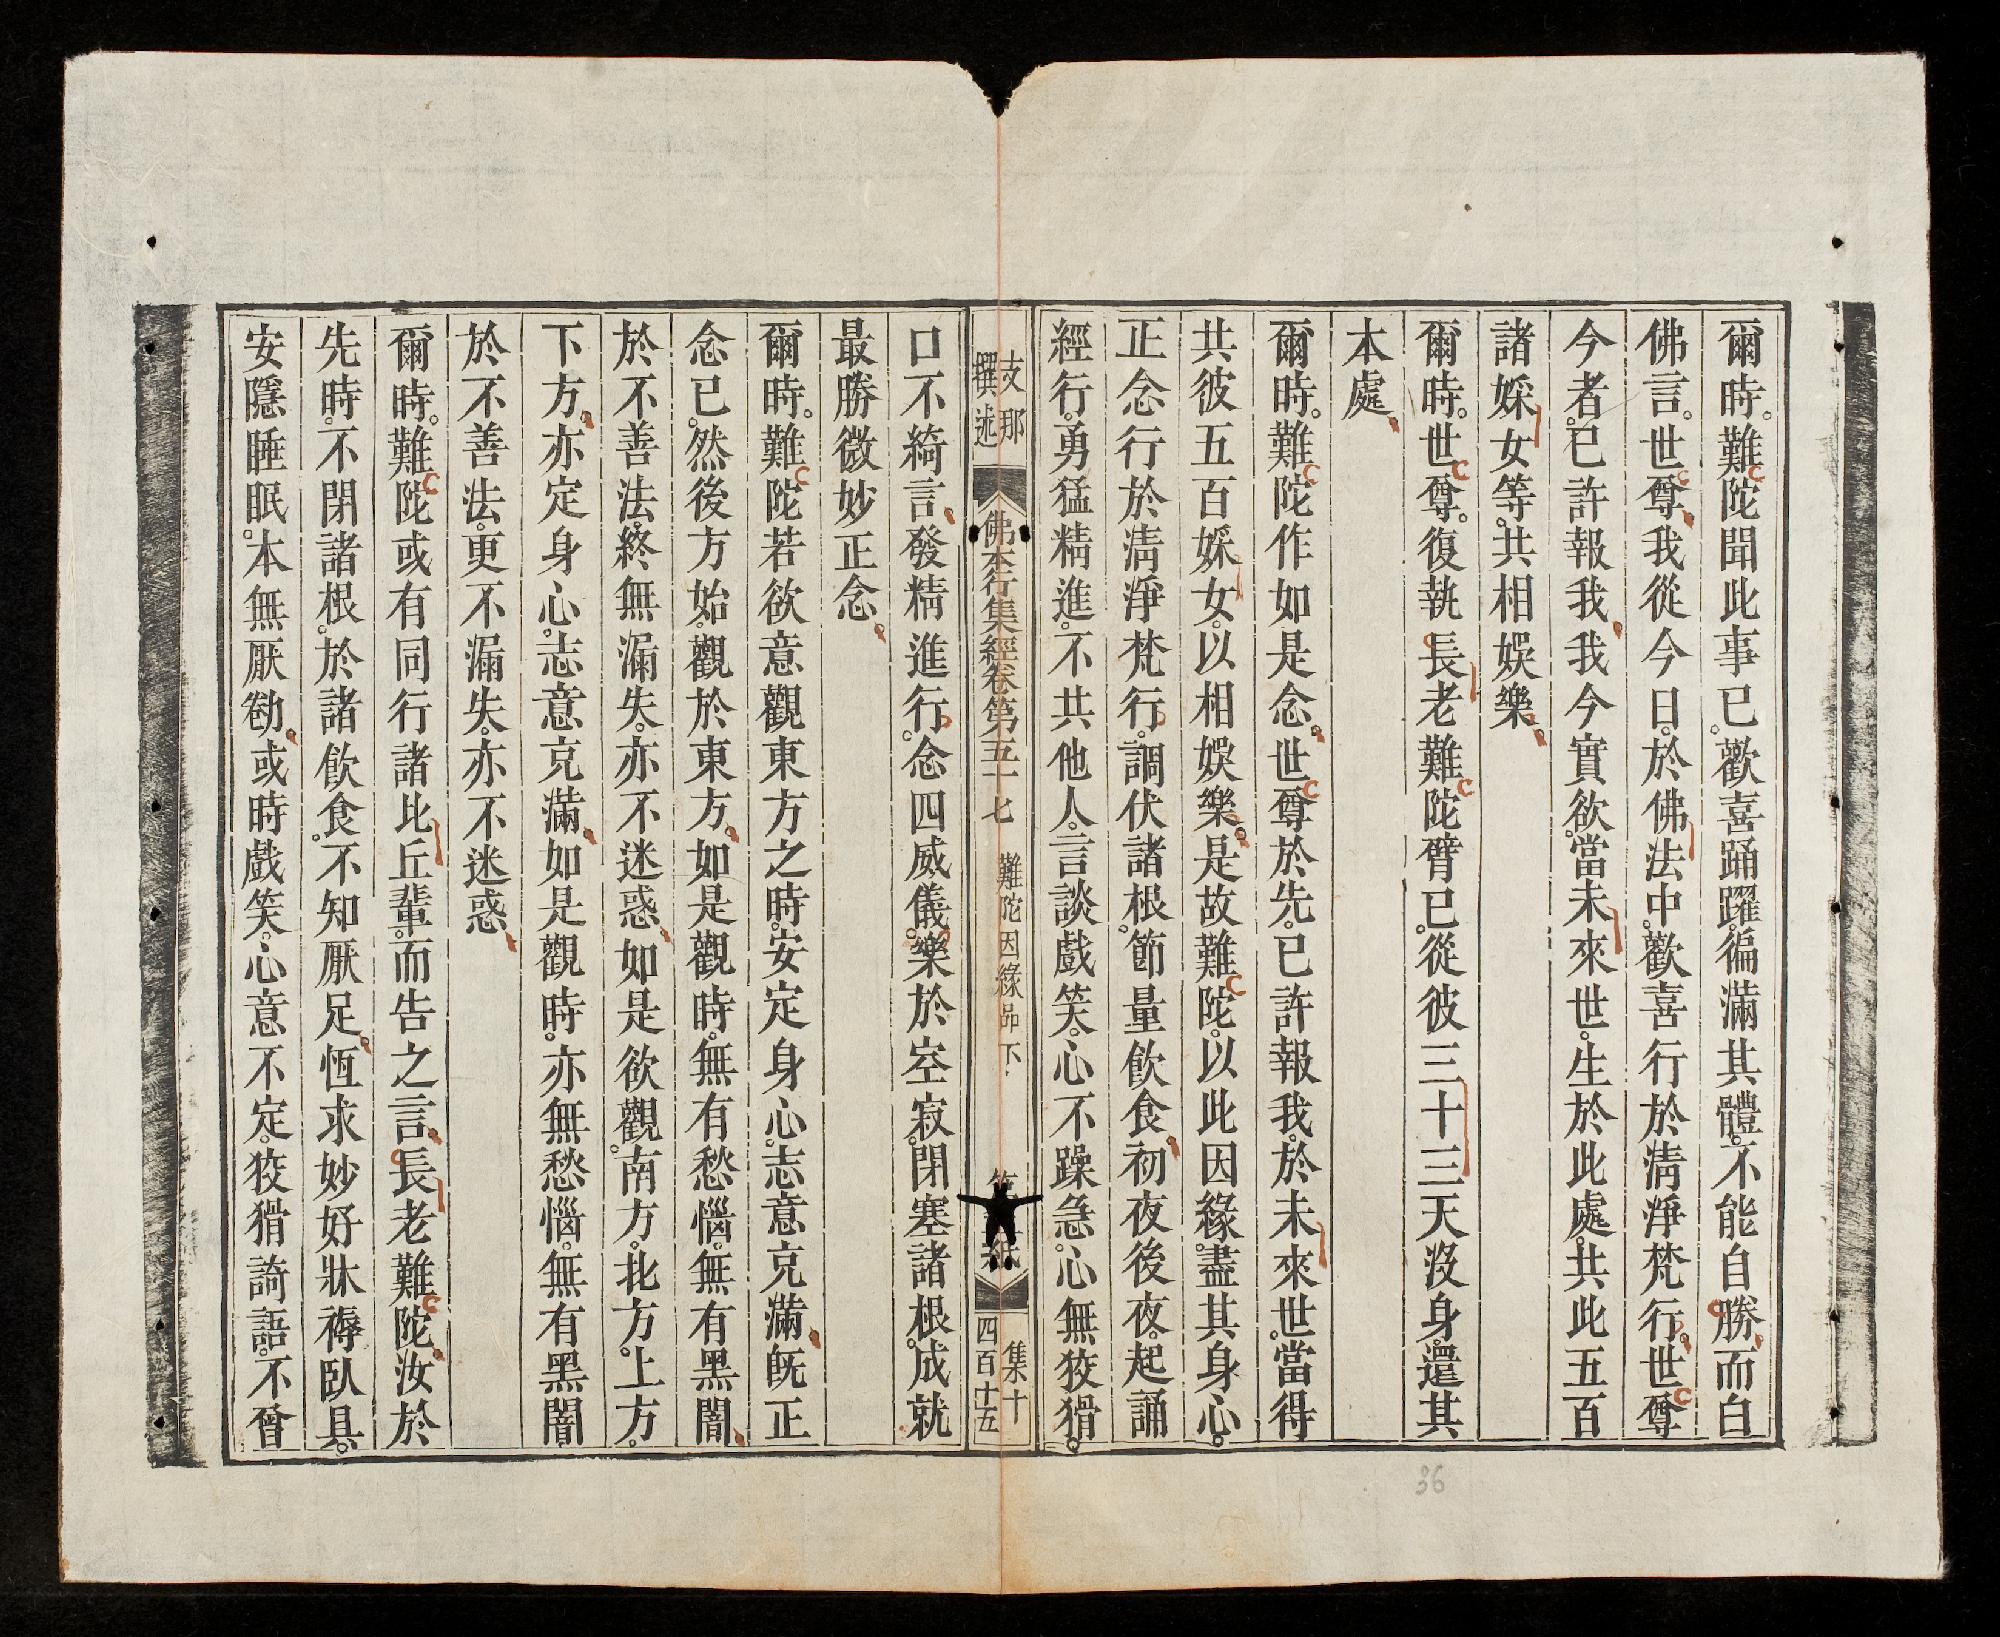 爾時。難陀聞此事已。歡喜踊躍。徧滿其體。不能自勝。而白
佛言。世尊。我從今日。於佛法中。歡喜行於清淨梵行。世尊
今者。已許報我。我今實欲。當未來世。生於此處。共此五百
諸婇女等。共相娛樂。
爾時。世尊。復執長老難陀臂已。從彼三十三天沒身。還其
本處。
爾時。難陀作如是念。世尊於先。已許報我。於未來世。當得
共彼五百婇女。以相娛樂。是故難陀。以此因緣。盡其身心。
正念行於清淨梵行。調伏諸根。節量飲食。初夜後夜。起誦
經行。勇猛精進。不共他人。言談戲笑。心不躁急。心無狡猾。
支那
撰述
佛本行集經卷第五十七
難陀因緣品下
紙
集十
四百十五
口不綺言。發精進行。念四威儀。樂於空寂。閉塞諸根。成就
最勝微妙正念。
爾時。難陀若欲意觀東方之時。安定身心。志意克滿。旣正
念已。然後方始。觀於東方。如是觀時。無有愁惱。無有黑闇。
於不善法。終無漏失。亦不迷惑。如是欲觀。南方。北方。上方。
下方。亦定身心。志意克滿。如是觀時。亦無愁惱。無有黑闇。
於不善法。更不漏失。亦不迷惑。
爾時。難陀或有同行諸比丘輩。而告之言。長老難陀。汝於
先時。不閉諸根。於諸飲食。不知厭足。恆求妙好牀褥臥具。
安隱睡眠。本無厭勌。或時戲笑。心意不定。狡猾譎語。不曾